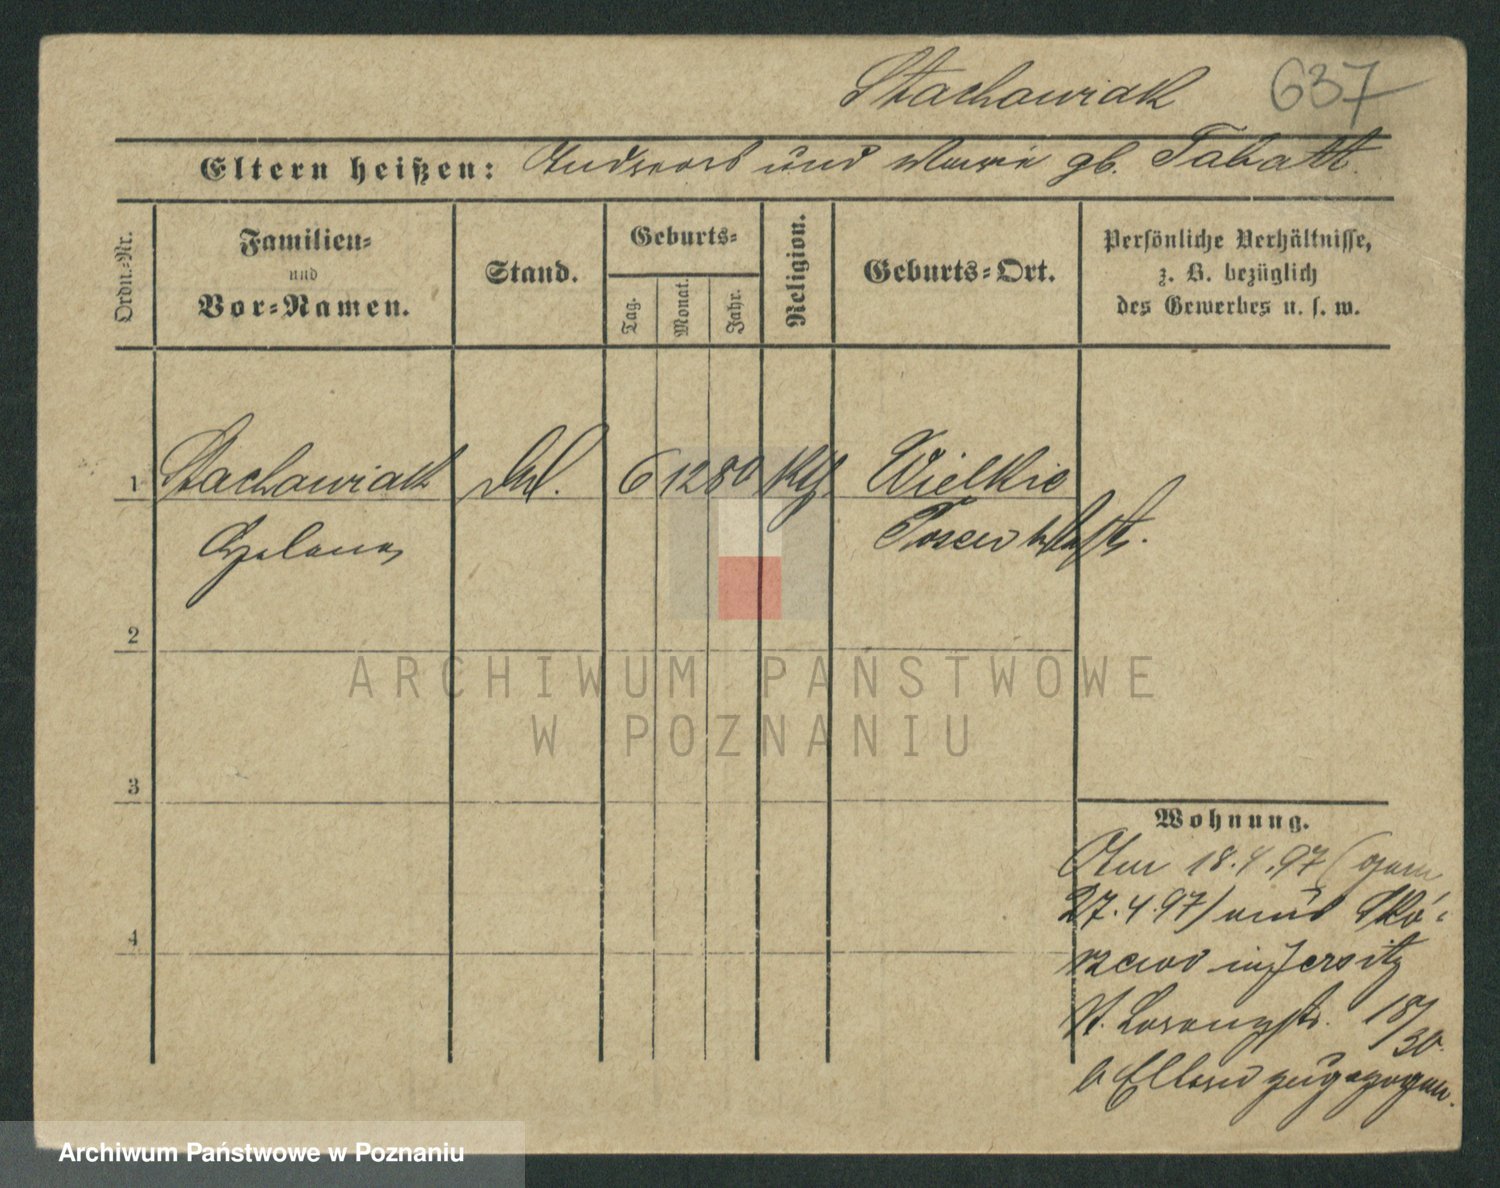 Stachowiak 637
Eltern heißen: Andreas und Marie gb.
Ordn.-Nr.
Familien-
und
Vor-Namen.
Stand.
Geburts-
Tag.
Monat.
Jahr.
Religion.
Geburts-Ort.
Persönliche Verhältnisse,
z. B. bezüglich
des Gewerbes u. s. w.
1 Stachowiak 6 12 80 Kth Wielkie
Posen
2
3
4
Wohnung.
Am 18.4.97 (gem
27.4.97) aus Skó-
rzewo in Jersitz
St. Lorenzstr. 18/
30.
b Eltern zugezogen.
ARCHIWUM PAŃSTWOWE
W POZNANIU
Archiwum Państwowe w Poznaniu